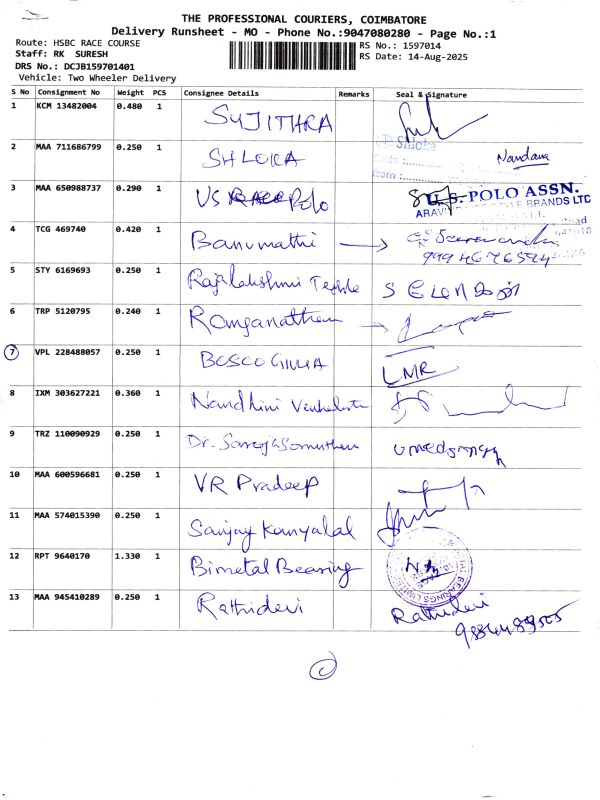 THE PROFESSIONAL COURIERS, COIMBATORE
Delivery Runsheet - MO - Phone No.:9047080280 - Page No.:1
Route: HSBC RACE COURSE
RS No.: 1597014
Staff: RK SURESH
RS Date: 14-Aug-2025
DRS No.: DCJB159701401
Vehicle: Two Wheeler Delivery
S No Consignment No Weight PCS Consignee Details Remarks Seal & Signature
1 KCM 13482004 0.480 1 SUJITHRA
2 MAA 711686799 0.250 1 SHLOKA Nandana
3 MAA 650988737 0.290 1 US Polo U.S. POLO ASSN.
ARAVIND LIFESTYLE BRANDS LTD
4 TCG 469740 0.420 1 Banumathi
5 STY 6169693 0.250 1 Rajalakshmi
6 TRP 5120795 0.240 1 Ranganathan
7 VPL 228488057 0.250 1 BOSCO LMR
8 IXM 303627221 0.360 1 Nandhini
9 TRZ 110090929 0.250 1 Dr.
10 MAA 600596681 0.250 1 VR Pradeep
11 MAA 574015390 0.250 1 Sanjay Kanyalal
12 RPT 9640170 1.330 1 Bimetal Bearing
13 MAA 945410289 0.250 1 Rathidevi Rathidevi